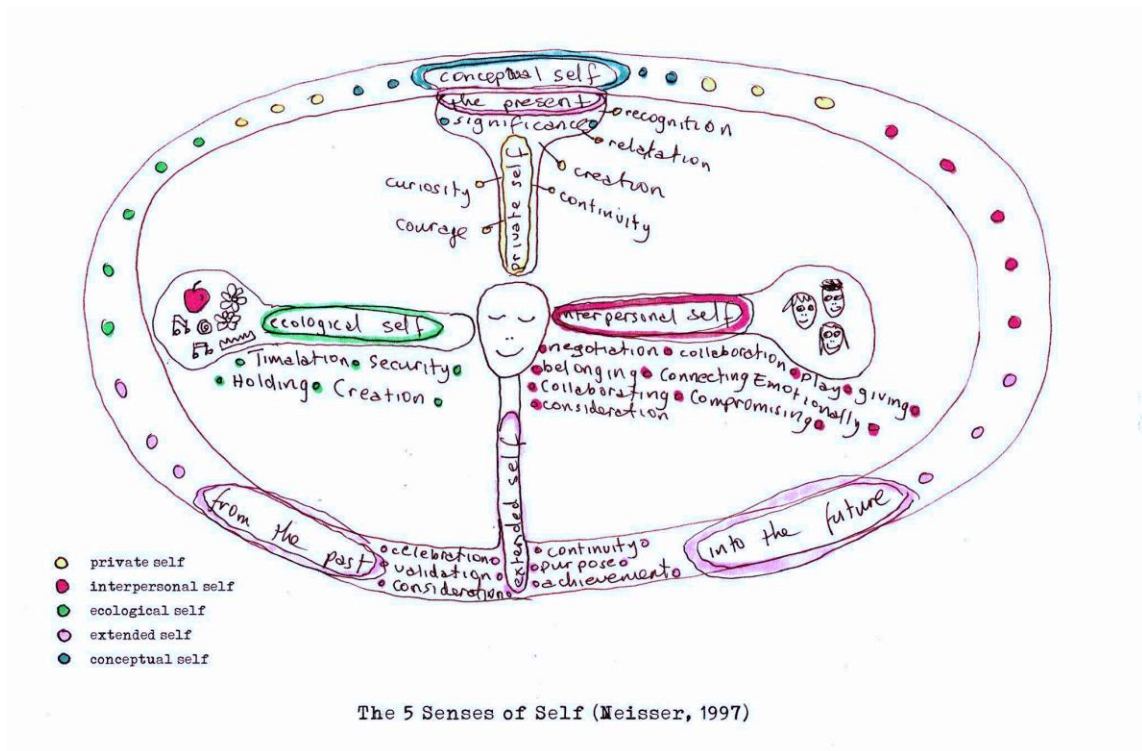 conceptual self
the present
significance
recognition
relaxation
creation
continuity
curiosity
courage
private self
ecological self
Timalation security
Holding Creation
interpersonal self
negotiation collaboration play giving
belonging Connecting Emotionally
Collaborating Compromising
consideration
extended self
from the past
into the future
celebration
validation
consideration
continuity
purpose
achievement
private self
interpersonal self
ecological self
extended self
conceptual self
The 5 Senses of Self (Neisser, 1997)